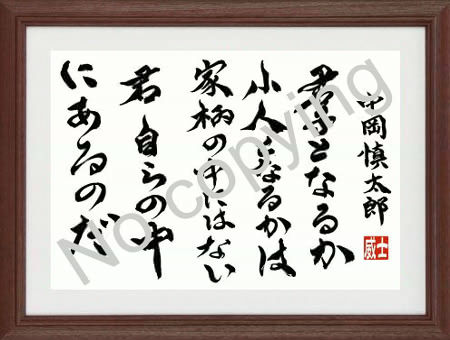 中岡慎太郎
君子となるか
小人となるかは
家柄の中にはない
君自らの中
にあるのだ
威士
No copying